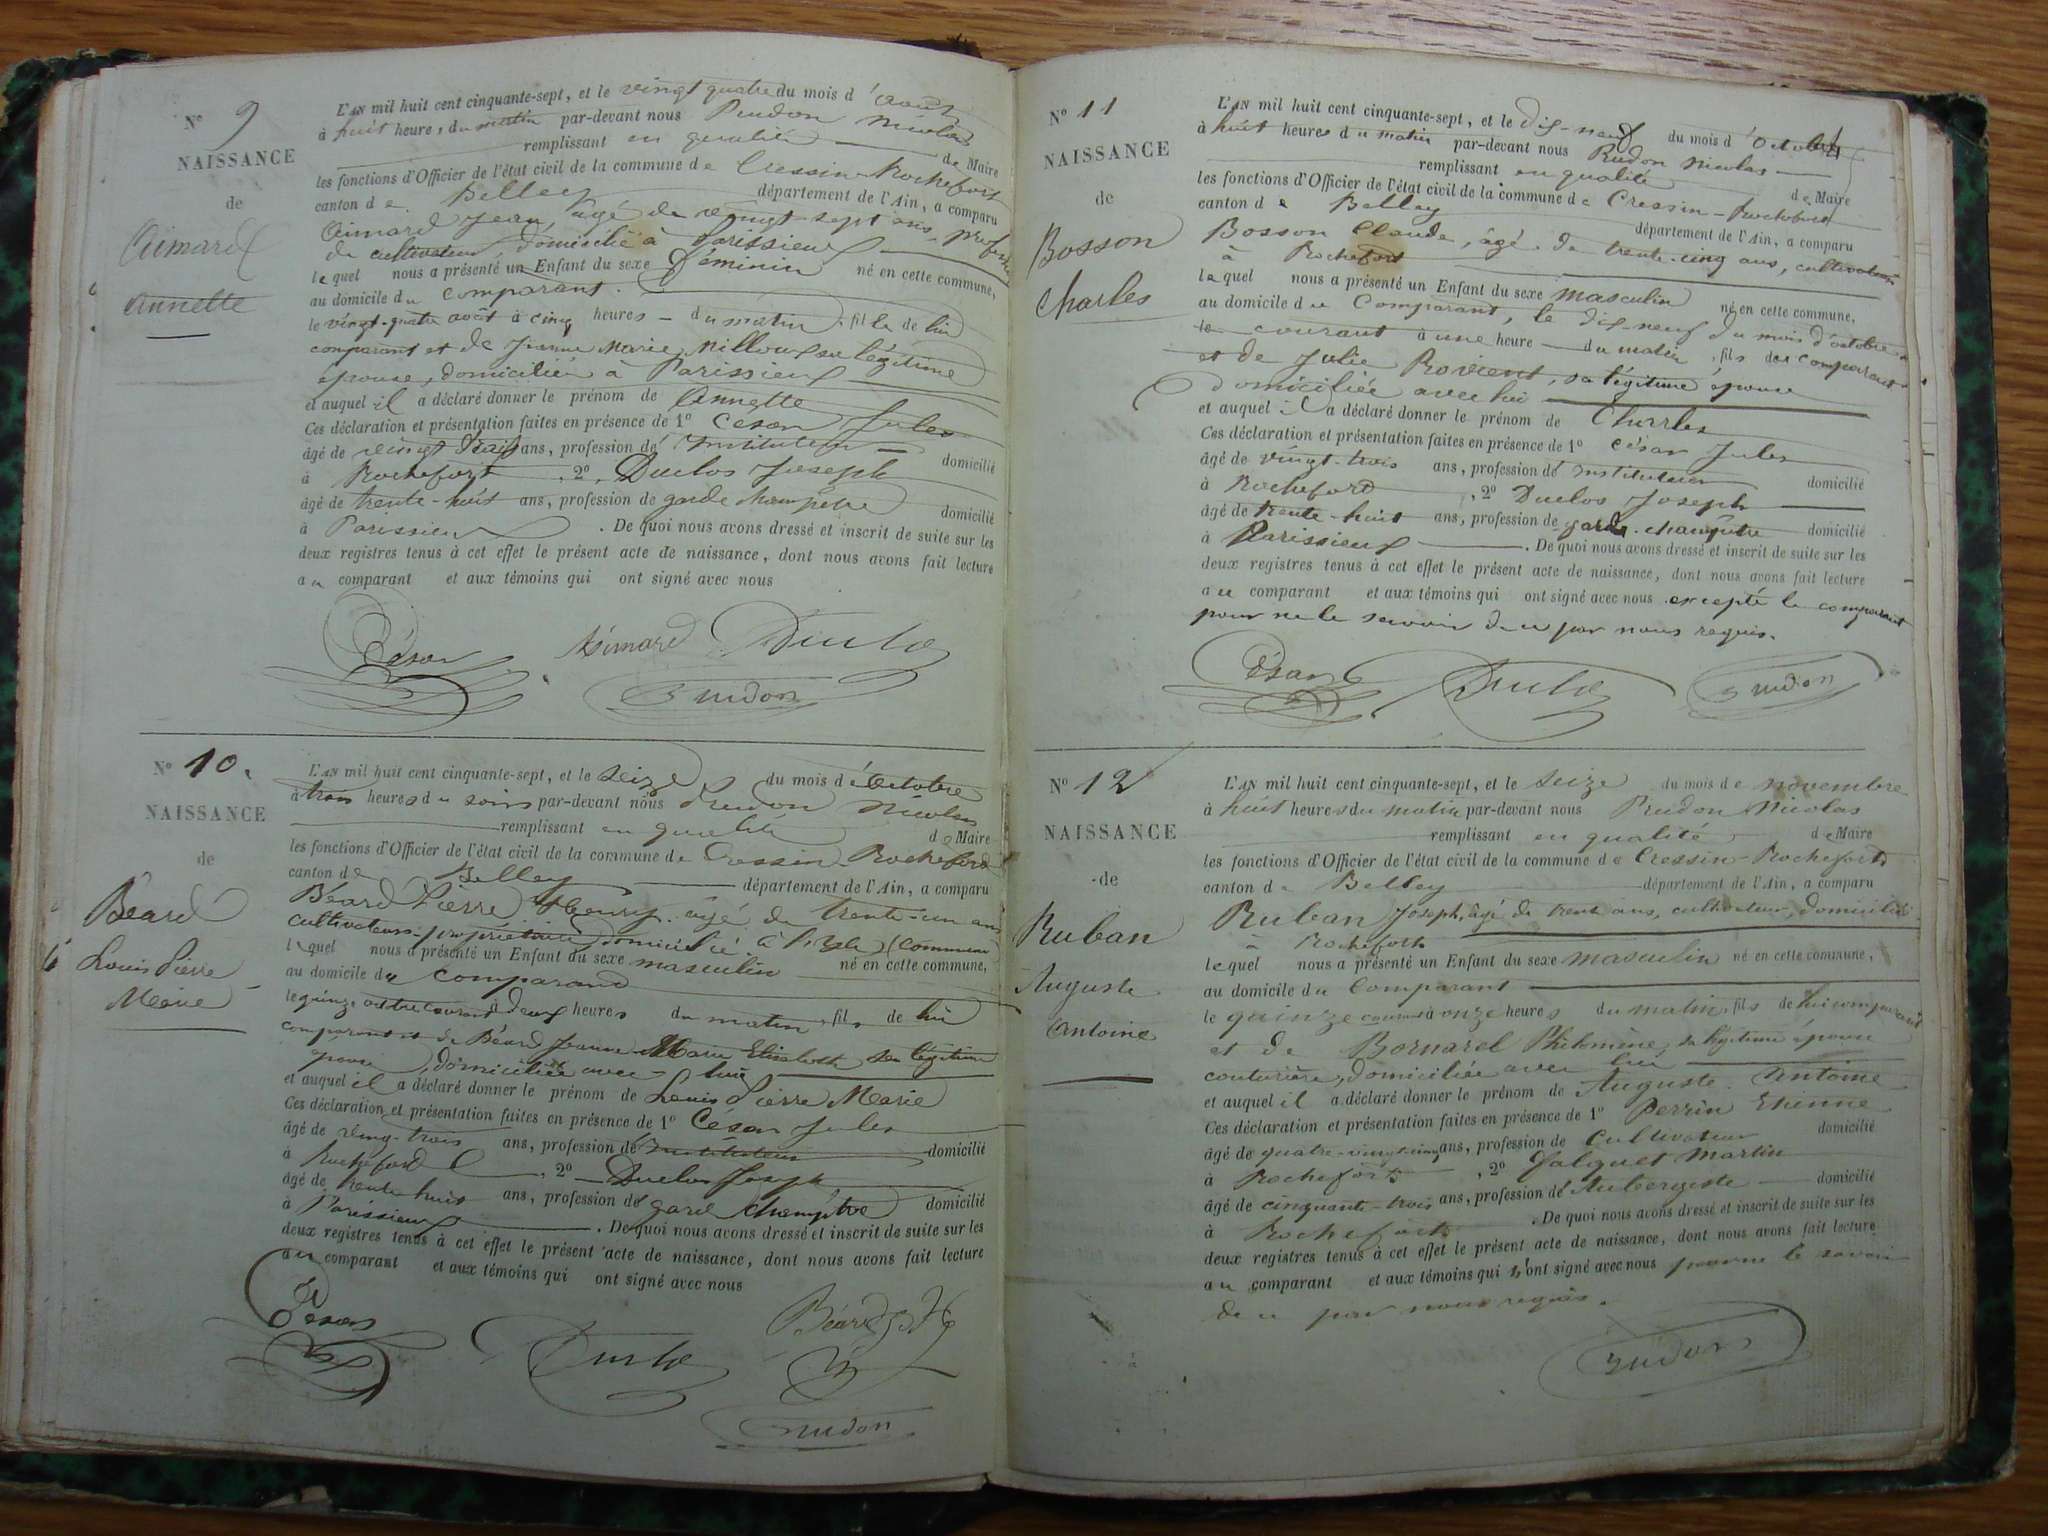 N° 9
NAISSANCE
de
Aimard
Annette
L'AN mil huit cent cinquante-sept, et le vingt quatre du mois d'août
à huit heures du matin par-devant nous Prudon Nicolas
remplissant en qualité de Maire
les fonctions d'Officier de l'état civil de la commune de Cressin-Rochefort
canton de Belley département de l'Ain, a comparu
Aimard Jean, âgé de vingt-sept ans, profession
de cultivateur, domicilié à Parissieux
lequel nous a présenté un Enfant du sexe féminin né en cette commune,
au domicile du comparant.
le vingt-quatre août à cinq heures du matin, fille de lui
comparant et de Jeanne Marie Millou sa légitime
épouse, domiciliée à Parissieux
et auquel il a déclaré donner le prénom de Annette
Ces déclaration et présentation faites en présence de 1° César Jules
âgé de vingt trois ans, profession de Instituteur domicilié
à Rochefort, 2° Duclos Joseph
âgé de trente-huit ans, profession de garde champêtre domicilié
à Parissieux. De quoi nous avons dressé et inscrit de suite sur les
deux registres tenus à cet effet le présent acte de naissance, dont nous avons fait lecture
au comparant et aux témoins qui ont signé avec nous
César Aimard Duclos
Prudon
N° 10.
NAISSANCE
de
Béard
Louis Pierre
Marie
L'AN mil huit cent cinquante-sept, et le seize du mois d'Octobre
à trois heures du soir par-devant nous Prudon Nicolas
remplissant en qualité de Maire
les fonctions d'Officier de l'état civil de la commune de Cressin-Rochefort
canton de Belley département de l'Ain, a comparu
Béard Pierre Henry, âgé de trente-un ans
cultivateur-propriétaire domicilié à (commune)
lequel nous a présenté un Enfant du sexe masculin né en cette commune,
au domicile du comparant
le quinze octobre courant à deux heures du matin, fils de lui
comparant et de Béard Jeanne Marie Elisabeth sa légitime
épouse, domiciliée avec lui
et auquel il a déclaré donner le prénom de Louis Pierre Marie
Ces déclaration et présentation faites en présence de 1° César Jules
âgé de vingt-trois ans, profession de Instituteur domicilié
à Rochefort, 2° Duclos Joseph
âgé de trente huit ans, profession de garde champêtre domicilié
à Parissieux. De quoi nous avons dressé et inscrit de suite sur les
deux registres tenus à cet effet le présent acte de naissance, dont nous avons fait lecture
au comparant et aux témoins qui ont signé avec nous
César Duclos Béard
Prudon
N° 11
NAISSANCE
de
Bosson
Charles
L'AN mil huit cent cinquante-sept, et le dix-neuf du mois d'Octobre
à huit heures du matin par-devant nous Prudon Nicolas
remplissant en qualité de Maire
les fonctions d'Officier de l'état civil de la commune de Cressin-Rochefort
canton de Belley département de l'Ain, a comparu
Bosson Claude, âgé de trente-cinq ans, cultivateur
à Rochefort
lequel nous a présenté un Enfant du sexe masculin né en cette commune,
au domicile du Comparant, le dix-neuf du mois d'octobre
le courant à une heure du matin, fils du comparant
et de Julie Rovient, sa légitime épouse
domiciliée avec lui
et auquel il a déclaré donner le prénom de Charles
Ces déclaration et présentation faites en présence de 1° César Jules
âgé de vingt-trois ans, profession de Instituteur domicilié
à Rochefort, 2° Duclos Joseph
âgé de trente-huit ans, profession de garde-champêtre domicilié
à Parissieux. De quoi nous avons dressé et inscrit de suite sur les
deux registres tenus à cet effet le présent acte de naissance, dont nous avons fait lecture
au comparant et aux témoins qui ont signé avec nous excepté le comparant
pour ne le savoir de ce par nous requis.
César Duclos Prudon
N° 12
NAISSANCE
de
Ruban
Auguste
Antoine
L'AN mil huit cent cinquante-sept, et le seize du mois de novembre
à huit heures du matin par-devant nous Prudon Nicolas
remplissant en qualité de Maire
les fonctions d'Officier de l'état civil de la commune de Cressin-Rochefort
canton de Belley département de l'Ain, a comparu
Ruban Joseph, âgé de trente ans, cultivateur, domicilié
à Rochefort
lequel nous a présenté un Enfant du sexe masculin né en cette commune,
au domicile du Comparant
le quinze courant à onze heures du matin, fils de lui comparant
et de Bornarel Philomène, sa légitime épouse
couturière, domiciliée avec lui
et auquel il a déclaré donner le prénom de Auguste Antoine
Ces déclaration et présentation faites en présence de 1° Perrin Etienne
âgé de quatre-vingt-cinq ans, profession de Cultivateur domicilié
à Rochefort, 2° Jalquet Martin
âgé de cinquante-trois ans, profession de Aubergiste domicilié
à Rochefort. De quoi nous avons dressé et inscrit de suite sur les
deux registres tenus à cet effet le présent acte de naissance, dont nous avons fait lecture
au comparant et aux témoins qui n'ont signé avec nous pour ne le savoir
de ce par nous requis.
Prudon